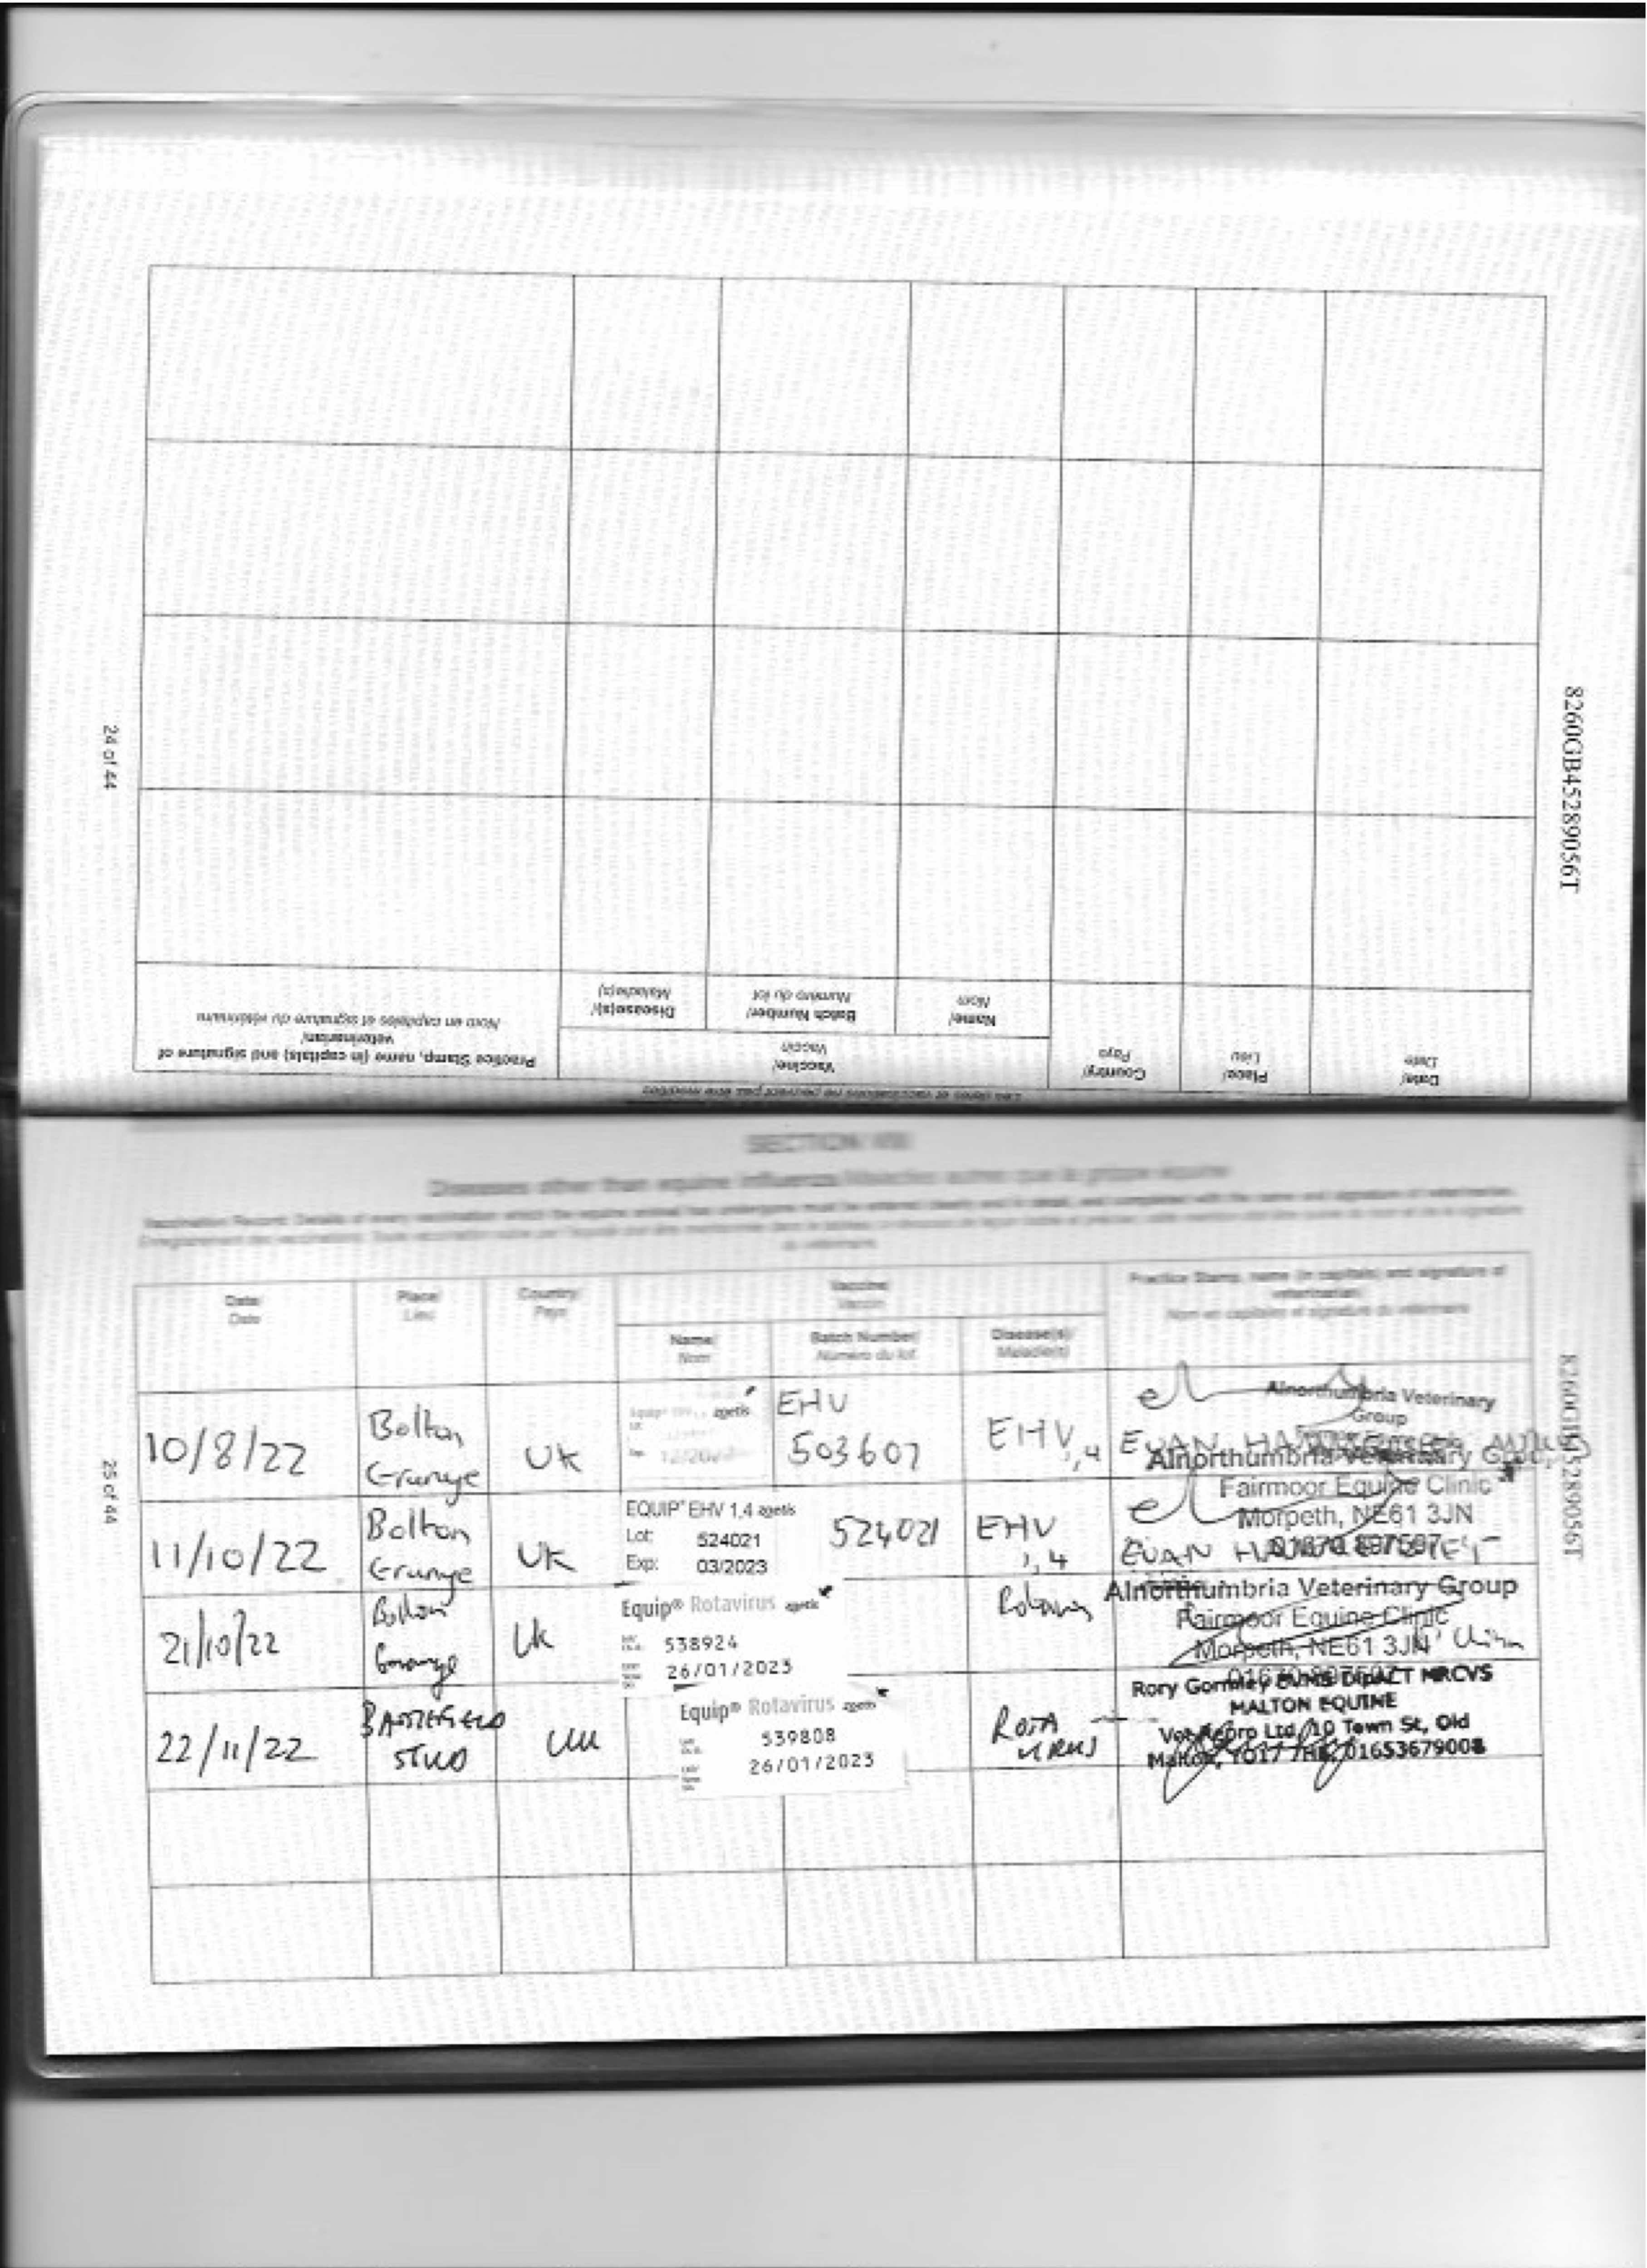 8260GB45289056T
24 of 44
Les dates et vaccinations ne peuvent pas être modifiées
Date/
Date
Place/
Lieu
Country/
Pays
Vaccine/
Vaccin
Name/
Nom
Batch Number/
Numéro du lot
Disease(s)/
Maladie(s)
Practice Stamp, name (in capitals) and signature of
veterinarian/
Nom en capitales et signature du vétérinaire
SECTION VIII
Diseases other than equine influenza/Maladies autres que la grippe équine
Vaccination Record: Details of every vaccination which the equine animal has undergone must be entered clearly and in detail, and completed with the name and signature of veterinarian.
du vétérinaire
Date/
Date
Place/
Lieu
Country/
Pays
Vaccine/
Vaccin
Name/
Nom
Batch Number/
Numéro du lot
Disease(s)/
Maladie(s)
Practice Stamp, name (in capitals) and signature of
veterinarian/
Nom en capitales et signature du vétérinaire
10/8/22
Bolton
Grange
UK
zoetis
EHV
503607
EHV
1,4
Alnorthumbria Veterinary
Group
EUAN
Alnorthumbria Veterinary Group
Fairmoor Equine Clinic
Morpeth, NE61 3JN
11/10/22
Bolton
Grange
UK
EQUIP® EHV 1,4 zoetis
Lot: 524021
Exp: 03/2023
524021
EHV
1,4
EUAN
21/10/22
Bolton
Grange
UK
Equip® Rotavirus zoetis
538924
26/01/2023
Alnorthumbria Veterinary Group
Fairmoor Equine Clinic
Morpeth, NE61 3JN
22/11/22
BATTLEFIELD
STUD
UK
Equip® Rotavirus zoetis
539808
26/01/2023
ROTA
VIRUS
Rory Gormley BVMS DipACT MRCVS
MALTON EQUINE
Vet Repro Ltd, 10 Town St, Old
Malton, YO17 7HB, 01653679008
25 of 44
8260GB45289056T